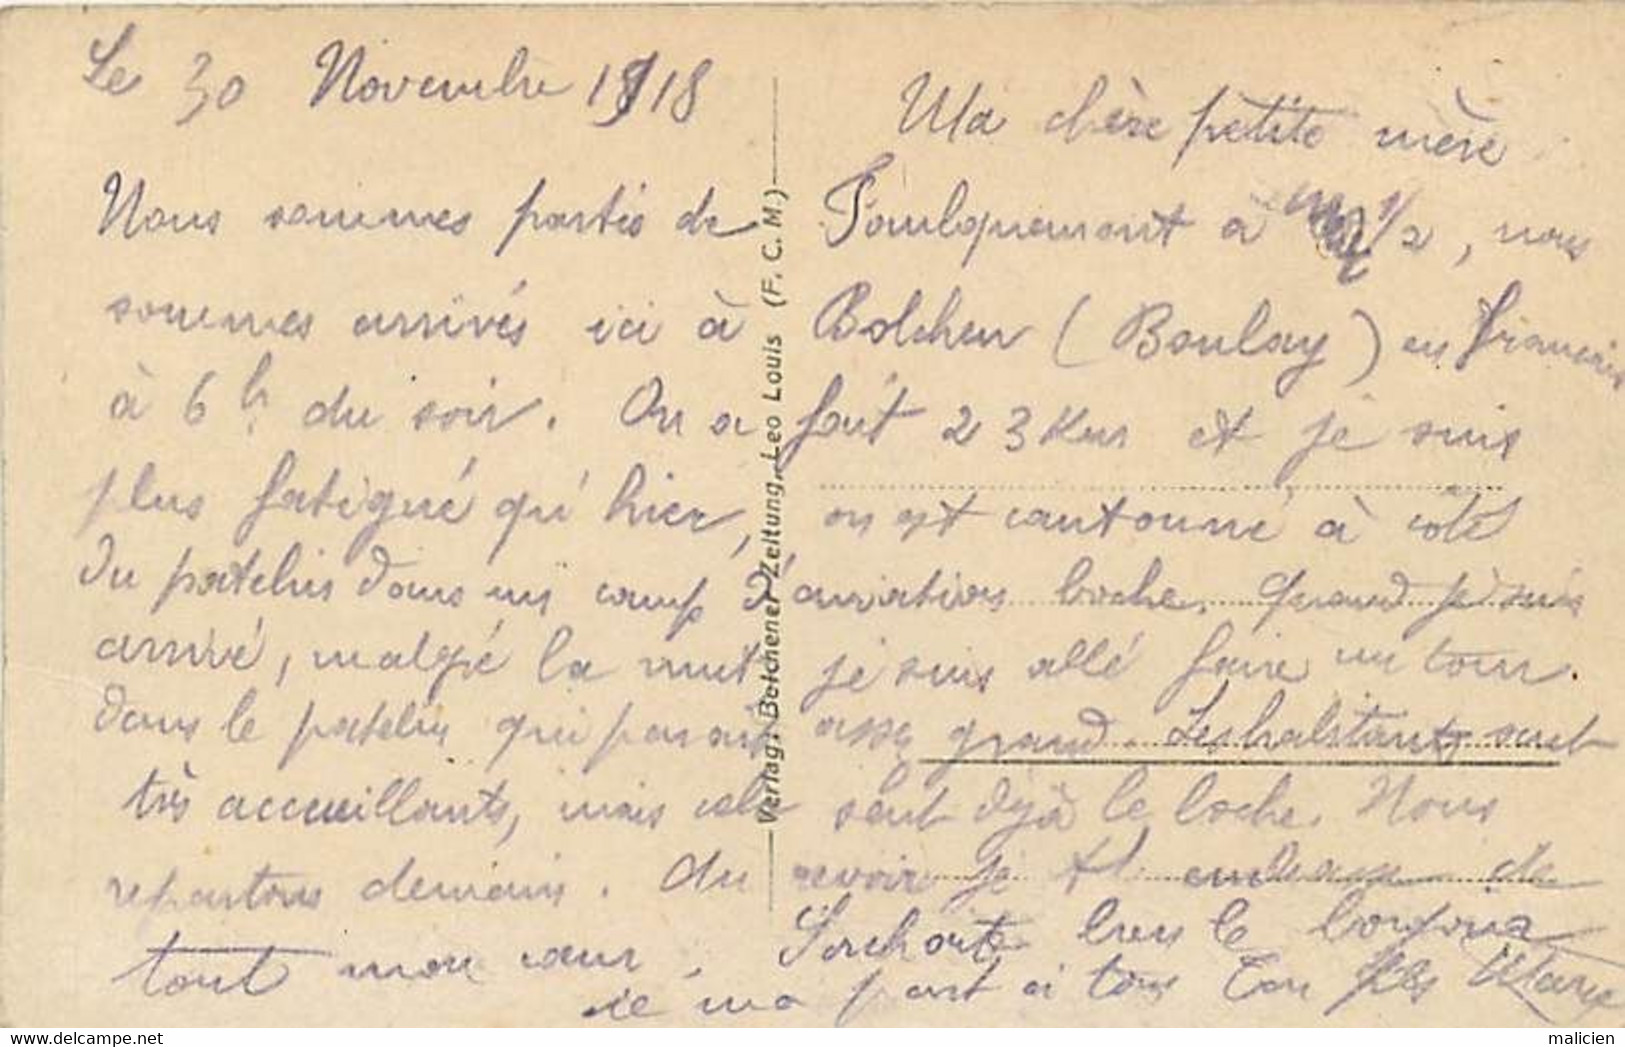 Le 30 Novembre 1918
Ma chère petite mère
Nous sommes partis de Faulquemont à 1/2, nous
sommes arrivés ici à Bolchen (Boulay) en français
à 6 h du soir. On a fait 23 Km et je suis
plus fatigué qu'hier, on est cantonné à côté
du patelin dans un camp d'aviation boche. Quand je suis
arrivé, malgré la nuit je suis allé faire un tour.
dans le patelin qui parait assez grand. Les habitants sont
très accueillants, mais cela sent déjà le boche. Nous
repartons demain. Au revoir je t'embrasse de
tout mon cœur. bien le bonjour
de ma part à tous Ton fils
Verlag: Bolchener Zeitung, Leo Louis (F. C. M.)
malicien